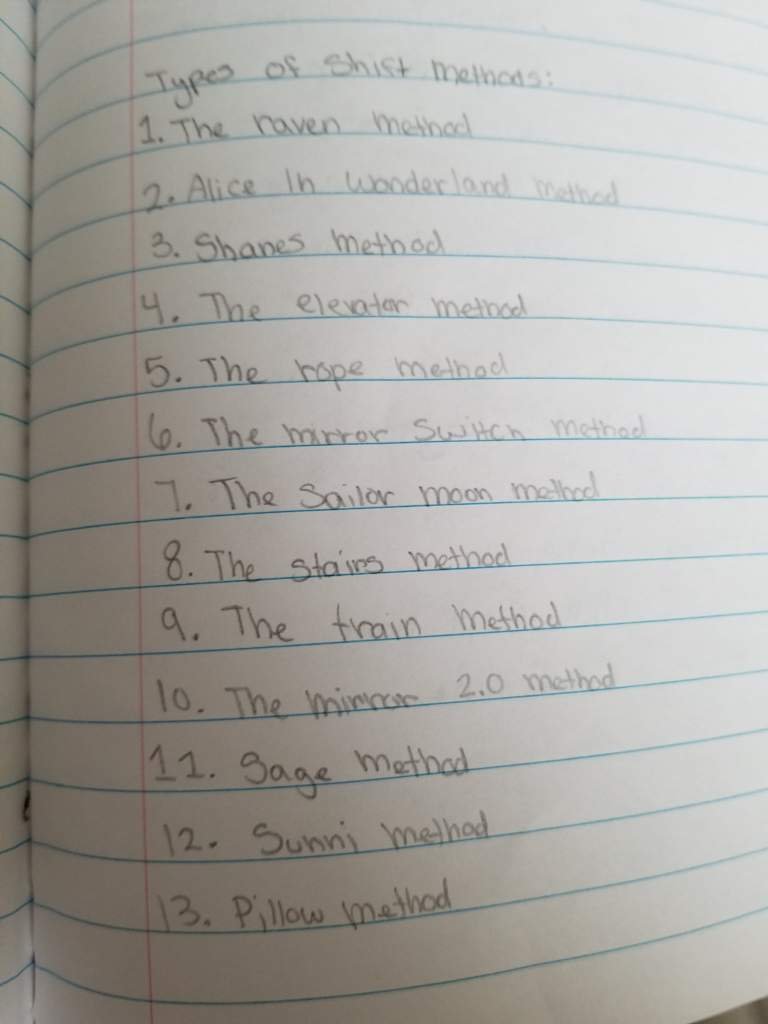 Types of Shift methods:
1. The raven method
2. Alice In Wonderland method
3. Shanes method
4. The elevator method
5. The rope method
6. The mirror Switch method
7. The Sailor moon method
8. The stairs method
9. The train method
10. The mirror 2.0 method
11. Sage method
12. Sunni method
13. Pillow method